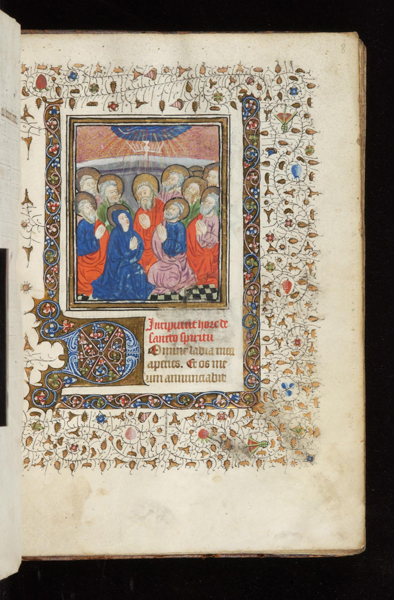 Incipiunt hore de
sancto spiritu
Domine labia mea
aperies. Et os me
um annunciabit